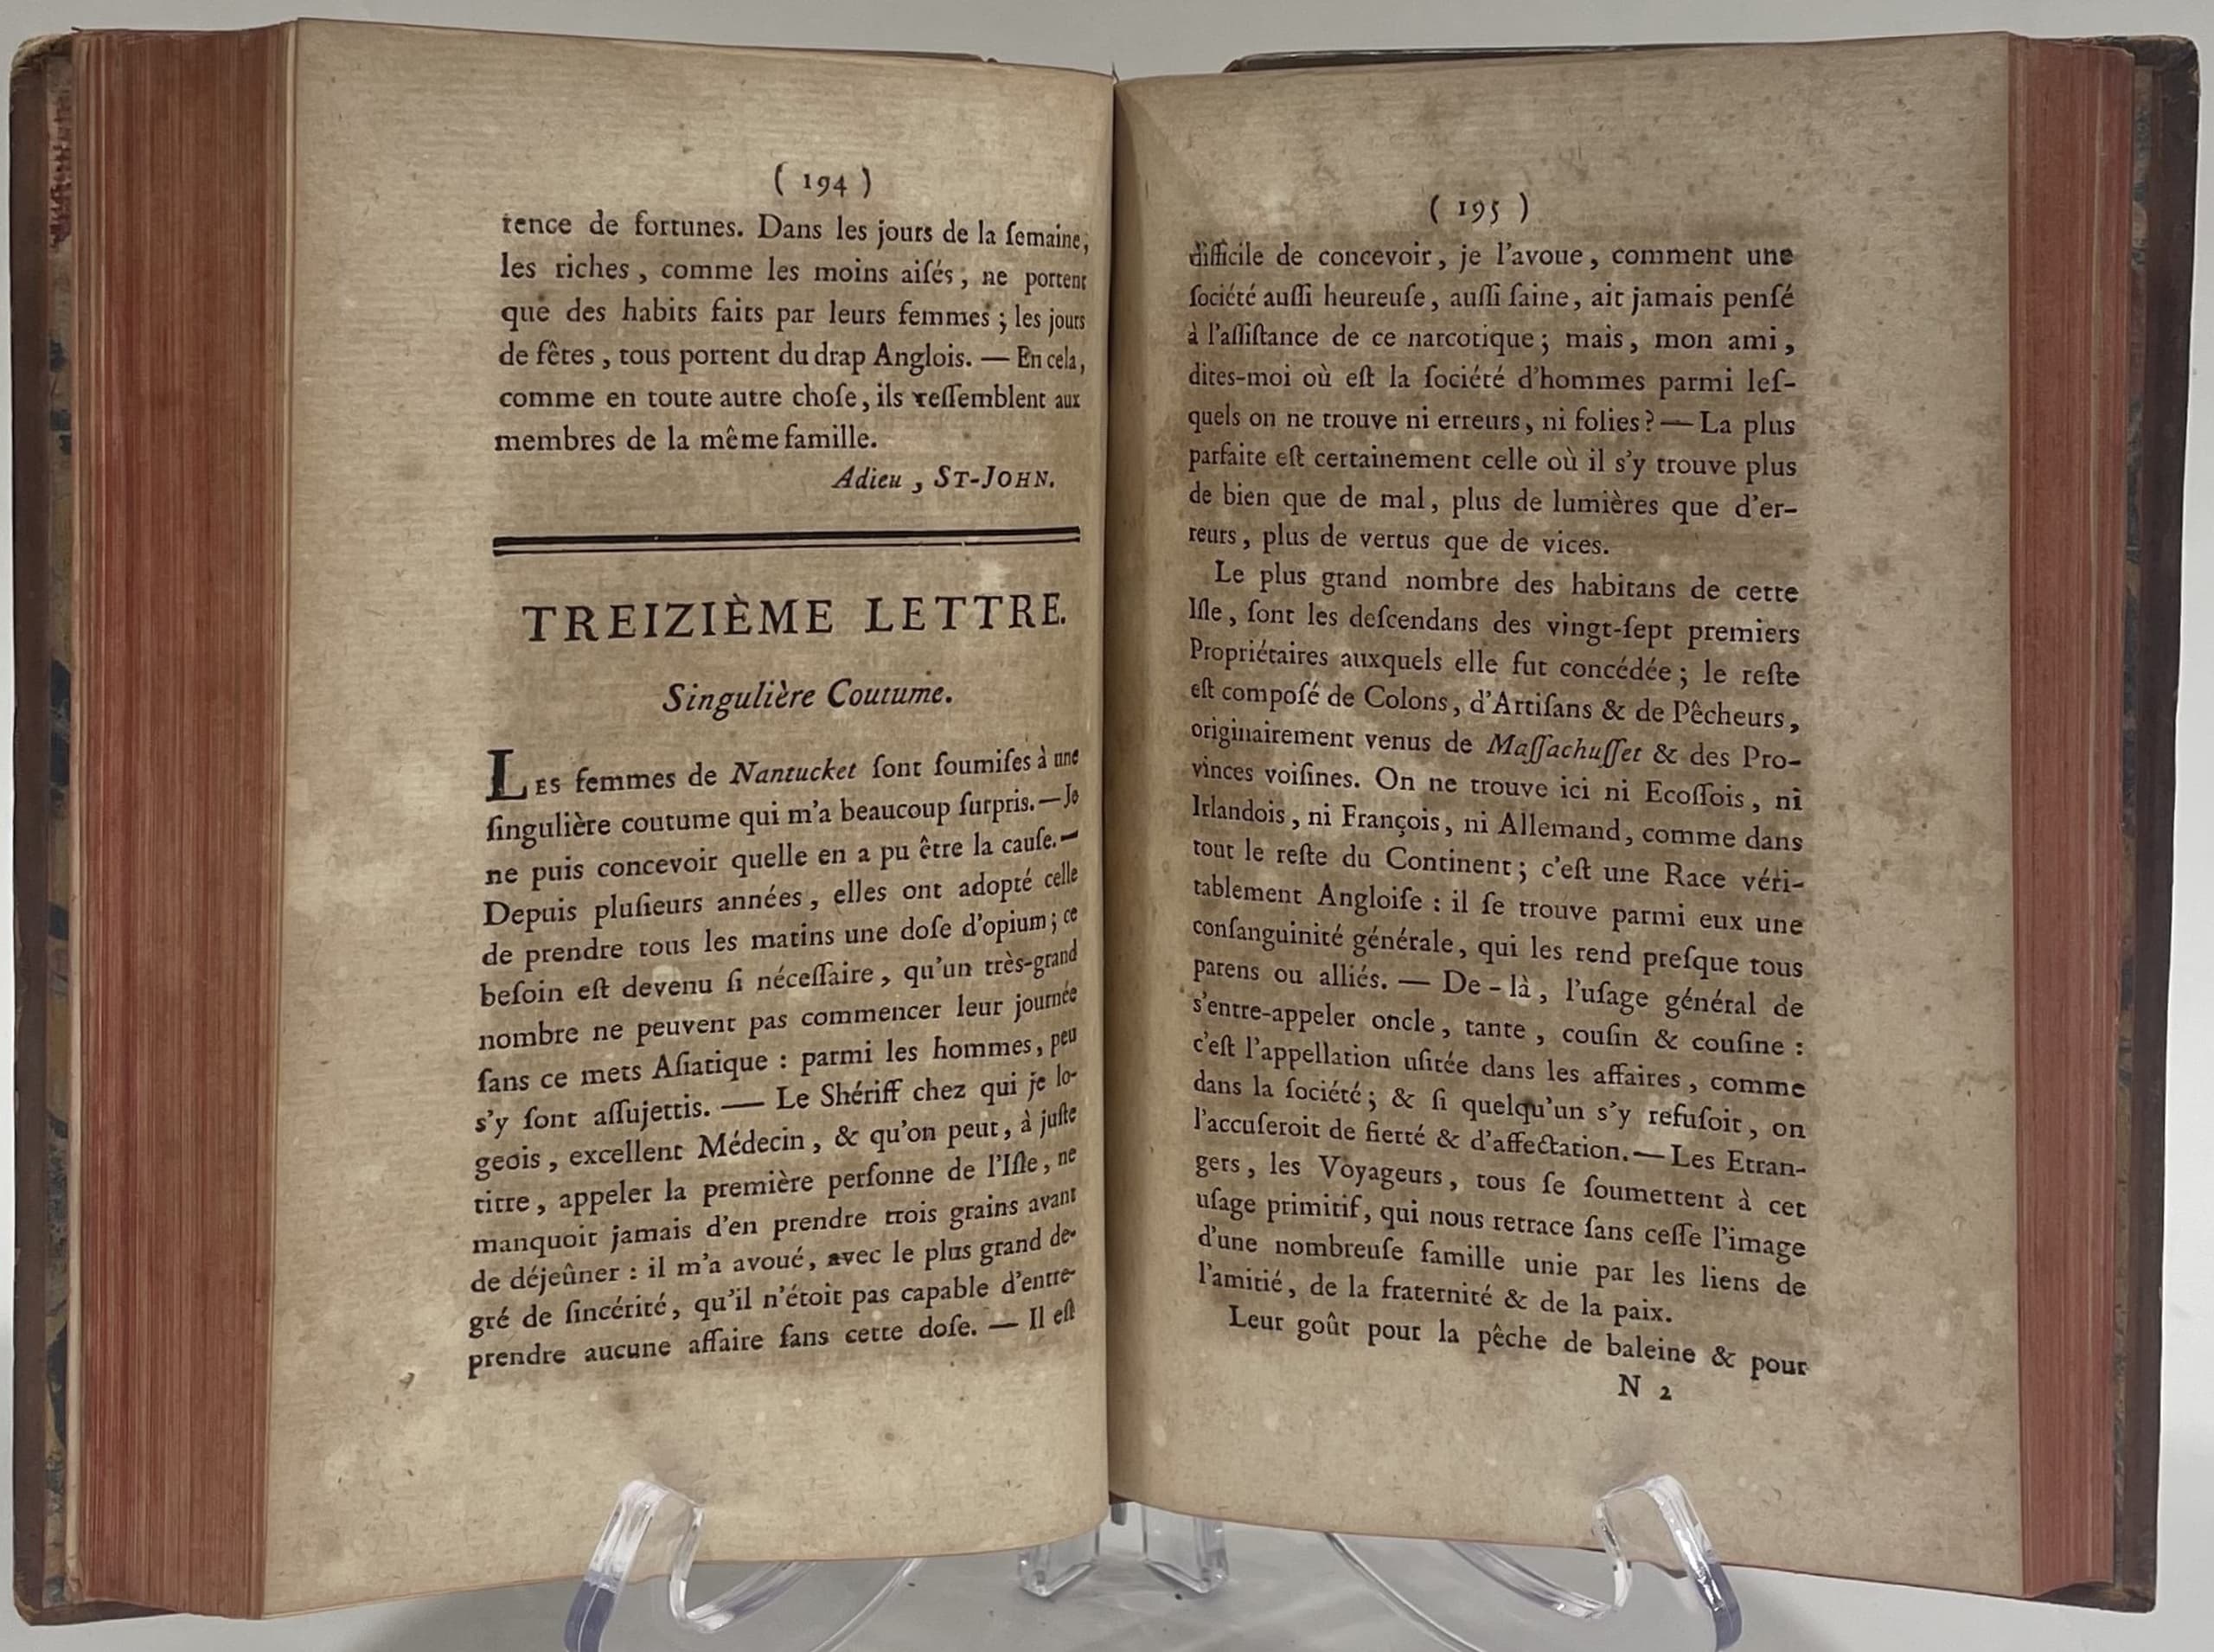 ( 194 )
tence de fortunes. Dans les jours de la ſemaine,
les riches, comme les moins aiſés, ne portent
que des habits faits par leurs femmes; les jours
de fêtes, tous portent du drap Anglois. — En cela,
comme en toute autre choſe, ils reſſemblent aux
membres de la même famille.
Adieu, ST-JOHN.
TREIZIÈME LETTRE.
Singulière Coutume.
LES femmes de Nantucket ſont ſoumiſes à une
ſingulière coutume qui m'a beaucoup ſurpris. — Je
ne puis concevoir quelle en a pu être la cauſe. —
Depuis pluſieurs années, elles ont adopté celle
de prendre tous les matins une doſe d'opium; ce
beſoin eſt devenu ſi néceſſaire, qu'un très-grand
nombre ne peuvent pas commencer leur journée
ſans ce mets Aſiatique : parmi les hommes, peu
s'y ſont aſſujettis. — Le Shériff chez qui je lo-
geois, excellent Médecin, & qu'on peut, à juſte
titre, appeler la première perſonne de l'Iſle, ne
manquoit jamais d'en prendre trois grains avant
de déjeûner : il m'a avoué, avec le plus grand de-
gré de ſincérité, qu'il n'étoit pas capable d'entre-
prendre aucune affaire ſans cette doſe. — Il eſt
( 195 )
difficile de concevoir, je l'avoue, comment une
ſociété auſſi heureuſe, auſſi ſaine, ait jamais penſé
à l'aſſiſtance de ce narcotique; mais, mon ami,
dites-moi où eſt la ſociété d'hommes parmi leſ-
quels on ne trouve ni erreurs, ni folies? — La plus
parfaite eſt certainement celle où il s'y trouve plus
de bien que de mal, plus de lumières que d'er-
reurs, plus de vertus que de vices.
Le plus grand nombre des habitans de cette
Iſle, ſont les deſcendans des vingt-ſept premiers
Propriétaires auxquels elle fut concédée; le reſte
eſt compoſé de Colons, d'Artiſans & de Pêcheurs,
originairement venus de Maſſachuſſet & des Pro-
vinces voiſines. On ne trouve ici ni Ecoſſois, ni
Irlandois, ni François, ni Allemand, comme dans
tout le reſte du Continent; c'eſt une Race véri-
tablement Angloiſe : il ſe trouve parmi eux une
conſanguinité générale, qui les rend preſque tous
parens ou alliés. — De-là, l'uſage général de
s'entre-appeler oncle, tante, couſin & couſine :
c'eſt l'appellation uſitée dans les affaires, comme
dans la ſociété; & ſi quelqu'un s'y refuſoit, on
l'accuſeroit de fierté & d'affectation. — Les Etran-
gers, les Voyageurs, tous ſe ſoumettent à cet
uſage primitif, qui nous retrace ſans ceſſe l'image
d'une nombreuſe famille unie par les liens de
l'amitié, de la fraternité & de la paix.
Leur goût pour la pêche de baleine & pour
N 2